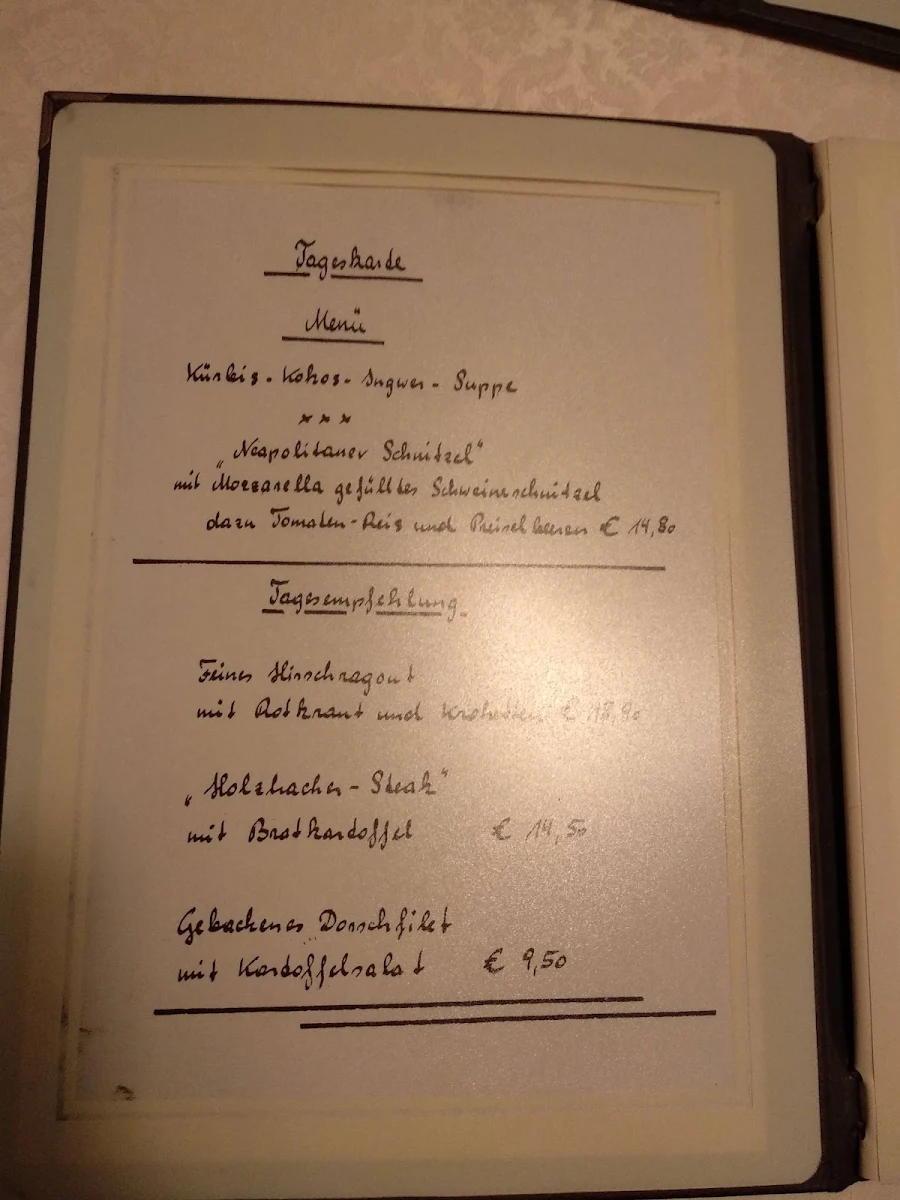 Tageskarte
Menü
Kürbis-Kokos-Ingwer-Suppe
x x x
„Neapolitaner Schnitzel“
mit Mozzarella gefülltes Schweineschnitzel
dazu Tomaten-Reis und Preiselbeeren € 14,80
Tagesempfehlung
Feines Hirschragout
mit Rotkraut und Kroketten € 18,90
„Holzhacker-Steak“
mit Bratkartoffel € 14,50
Gebackenes Dorschfilet
mit Kartoffelsalat € 9,50